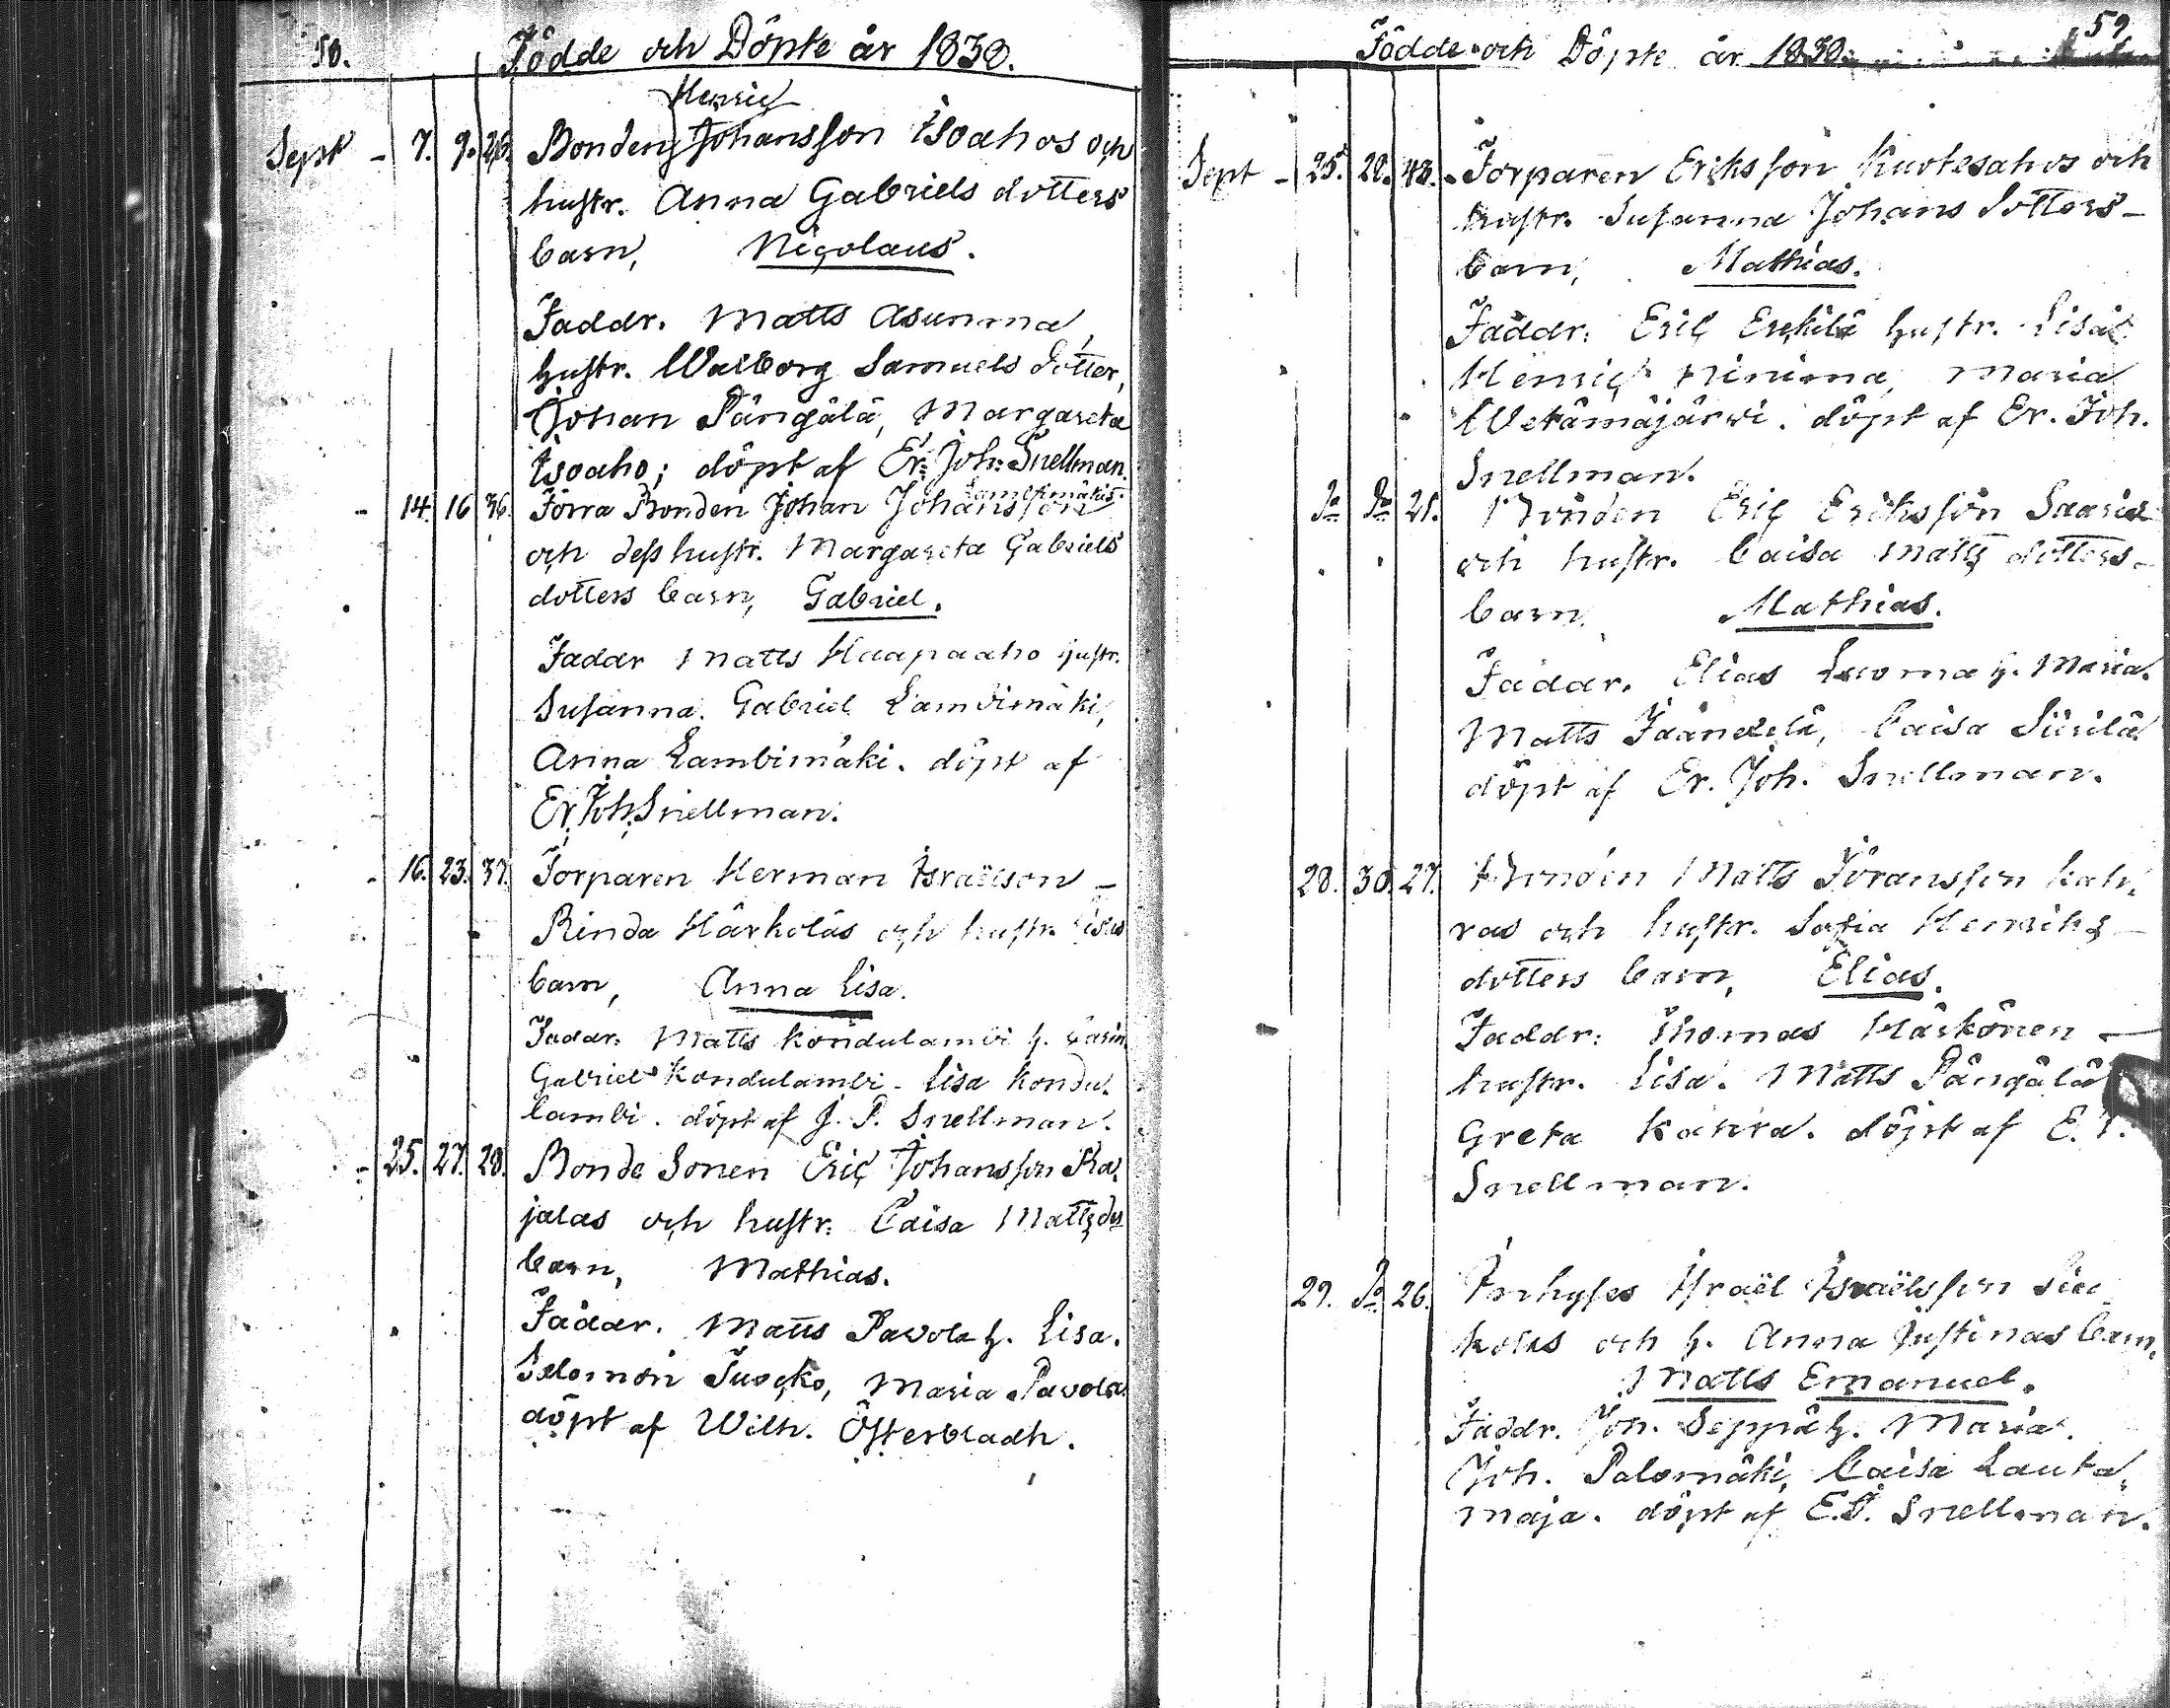 58.
Födde och Döpte år 1838.
Henric
Sept - 7. 9. 26. Bonden Johansson Isoahos och
hustr. Anna Gabriels dotters
barn, Nicolaus.
Faddr. Matts Asunma,
hustr. Walborg Samuels dotter,
Johan Pångälä, Margareta
Isoaho; döpt af Er. Joh. Snellman.
Lambimäkis
- 14. 16 36. Förra Bonden Johan Johansson
och dess hustr. Margareta Gabriels
dotters barn, Gabriel.
Faddr Matts Haapaaho hustr.
Susanna. Gabriel Lambimäki,
Anna Lambimäki. döpt af
Er. Joh. Snellman.
- 16. 23. 37. Torparen Herman Israëlson -
Rinda Härkoläs och hustr. Lisas
barn, Anna Lisa.
Faddr: Matts Kondulambi h. Carin.
Gabriel Kondulambi. Lisa Kondu-
lambi. döpt af J. P. Snellman.
- 25. 27. 28. Bonde Sonen Eric Johansson Ra-
jalas och hustr: Caisa Matts drs
barn, Mathias.
Faddr. Matts Pavola h. Lisa.
Salomon Tuocko, Maria Pavola
döpt af Wilh. Österbladh.
59
Födde och Döpte år 1838.
Sept - 25. 28. 43. Torparen Eriksson Kuotesahos och
hustr. Susanna Johans dotters -
barn, Mathias.
Faddr: Eric Erkilä hustr. Lisa.
Henric Ninima, Maria
Wetämäjärvi. döpt af Er. Joh.
Snellman.
Do Do 21. Bonden Eric Eriksson Saaris
och hustr. Caisa Matts dotters -
barn, Mathias.
Faddr. Elias Luoma h. Maria.
Matts Jäänelä, Caisa Siirilä
döpt af Er. Joh. Snellman.
28. 30. 27. Bonden Matts Göransson Kah-
ras och hustr. Sofia Henriks -
dotters barn, Elias.
Faddr: Thomas Härkönen -
hustr. Lisa. Matts Pångälä
Greta Kahra. döpt af E.
Snellman.
29. Do 26. Inhyses Israël Israëlsson
kolas och h. Anna Justinas barn,
Matts Emanuel.
Faddr. Joh. Seppä h. Maria.
Joh. Palomäki, Caisa Lauta-
maja. döpt af E. J. Snellman.